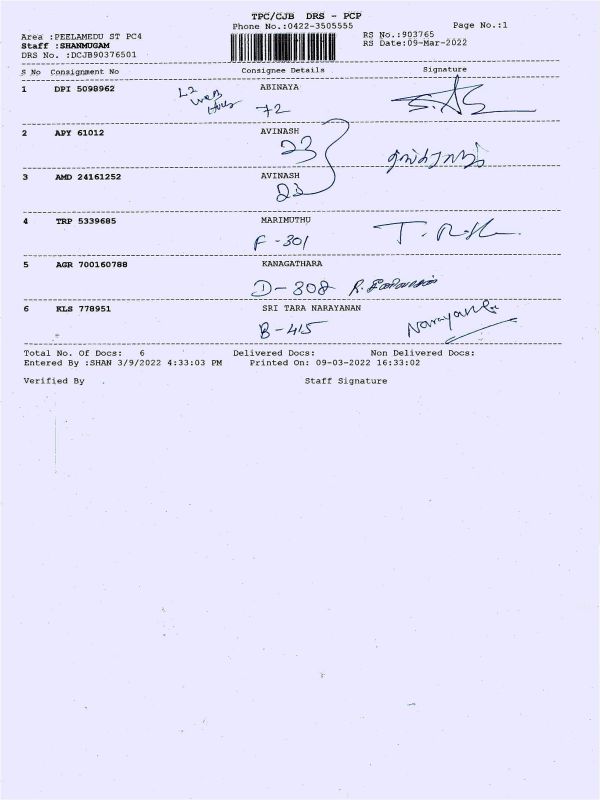 TPC/CJB DRS - PCP
Phone No.:0422-3505555
Page No.:1
Area :PEELAMEDU ST PC4
RS No.:903765
Staff :SHANMUGAM
RS Date:09-Mar-2022
DRS No. :DCJB90376501
S No Consignment No Consignee Details Signature
1 DPI 5098962 ABINAYA
72
2 APY 61012 AVINASH
23
3 AMD 24161252 AVINASH
23
4 TRP 5339685 MARIMUTHU
F-301
5 AGR 700160788 KANAGATHARA
D-308
6 KLS 778951 SRI TARA NARAYANAN
B-415 Narayanan
Total No. Of Docs: 6 Delivered Docs: Non Delivered Docs:
Entered By :SHAN 3/9/2022 4:33:03 PM Printed On: 09-03-2022 16:33:02
Verified By Staff Signature